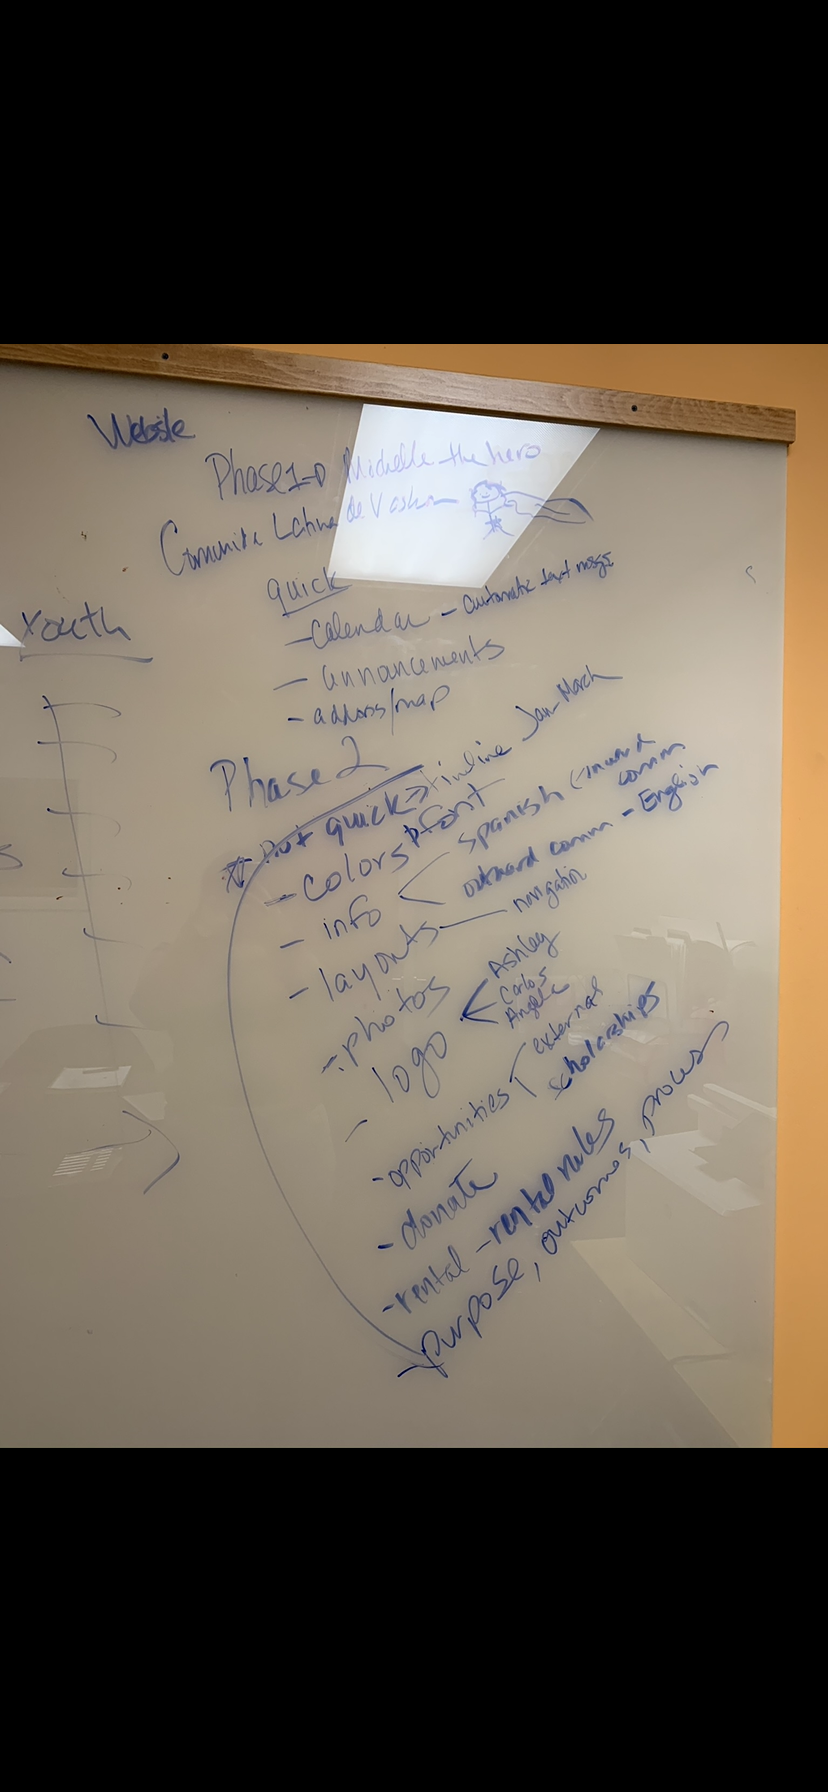 Website
Phase 1 Michelle the hero
Comunita Latina de Vashon
Youth
quick
- Calendar - automatic text msgs
- announcements
- address/map
Phase 2
quick => timeline Jan-March
- colors + font
- info < Spanish inward comm
outward comm - English
- layouts - navigation
- photos
- logo < Ashley
Carlos
Angela
- opportunities external
scholarships
- donate
- rental - rental rules
- purpose, outcomes, process